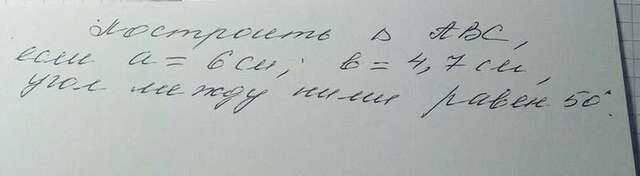 Построить △ ABC,
если a = 6 см; в = 4,7 см,
угол между ними равен 50°.